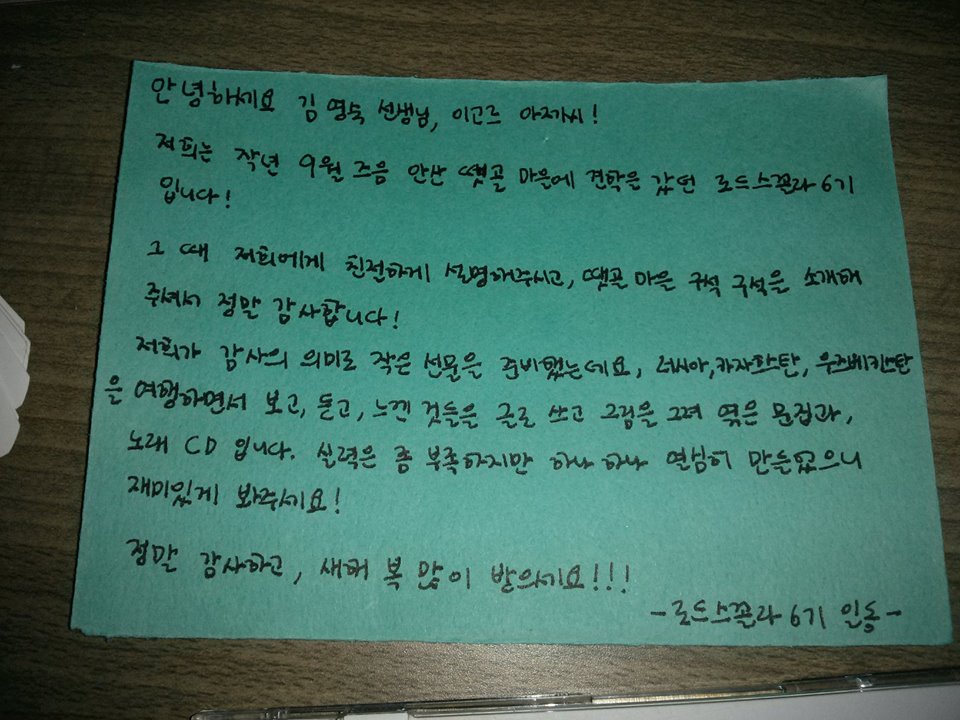 안녕하세요 김영숙 선생님, 이고르 아저씨!
저희는 작년 9월 즈음 안산 땟골 마을에 견학을 갔던 로드스꼴라 6기
입니다!
그 때 저희에게 친절하게 설명해주시고, 땟골 마을 구석 구석을 소개해
주셔서 정말 감사합니다!
저희가 감사의 의미로 작은 선물을 준비했는데요, 러시아, 카자흐스탄, 우즈베키스탄
을 여행하면서 보고, 듣고, 느낀 것들을 글로 쓰고 그림을 그려 엮은 문집과,
노래 CD 입니다. 실력은 좀 부족하지만 하나 하나 열심히 만들었으니
재미있게 봐주세요!
정말 감사하고, 새해 복 많이 받으세요!!!
- 로드스꼴라 6기 일동 -